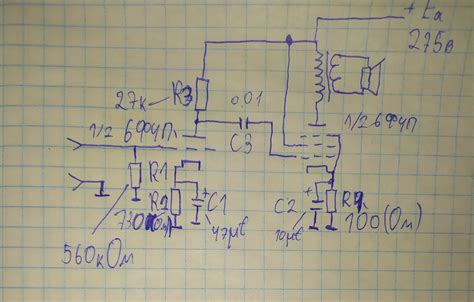 + Ea
275в
27к
R3
0,01
C3
1/2 6Ф4П
1/2 6Ф4П
R1
R2
+
C1
47µf
560кОм
C2
+
10µf
R4
100(Ом)